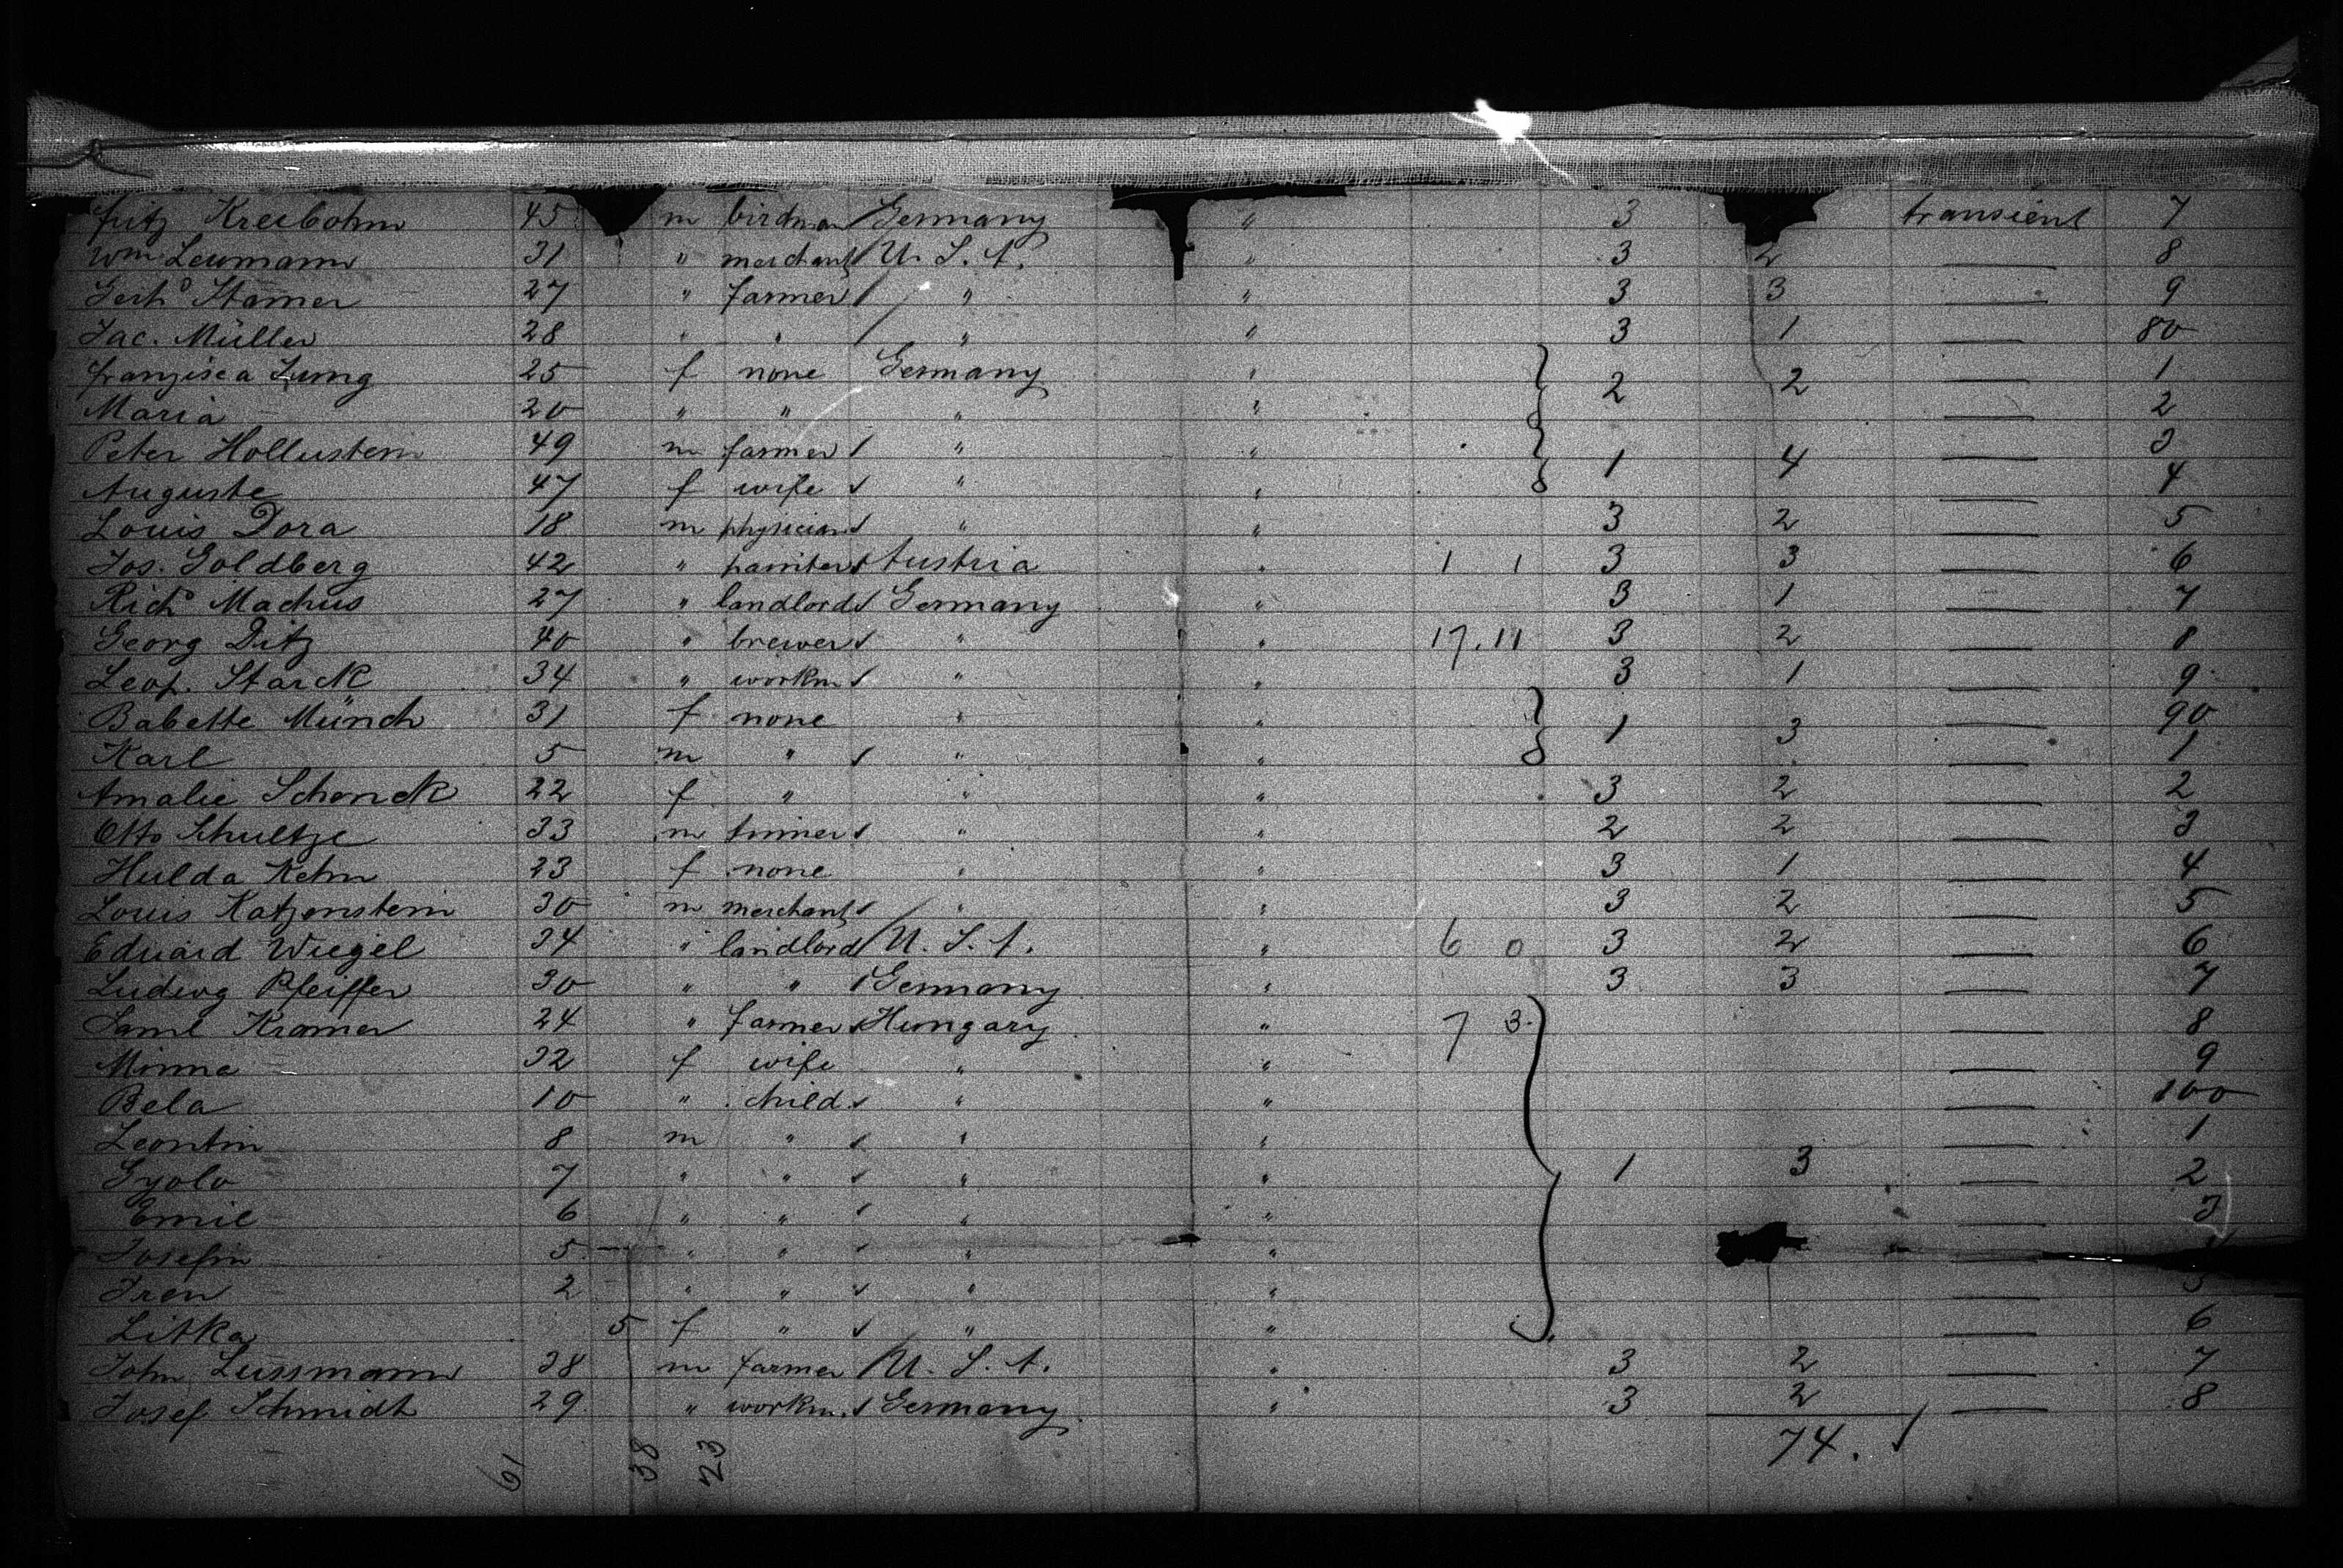 Fritz Kreibohm 45 m birdman Germany " 3 transient 7
Wm Leumann 31 " merchant U. S. A. " 3 2 — 8
Gerhd Stamer 27 " farmer " " 3 3 — 9
Jac. Müller 28 " " " " 3 1 — 80
Franzisca Lung 25 f none Germany " 2 2 — 1
Maria 20 " " " " — 2
Peter Hollustein 49 m farmer " " 1 4 — 3
Auguste 47 f wife " " — 4
Louis Dora 18 m physician " " 3 2 — 5
Jos. Goldberg 42 " painter Austria " 1 1 3 3 — 6
Richd Machus 27 " landlord Germany " 3 1 — 7
Georg Ditz 40 " brewer " " 17. 11 3 2 — 8
Leop. Starck 34 " workm " " 3 1 — 9
Babette Münch 31 f none " " 1 3 — 90
Karl 5 m " " " — 1
Amalie Schenck 22 f " " " 3 2 — 2
Otto Schultze 33 m tinner " " 2 2 — 3
Hulda Kehn 23 f none " " 3 1 — 4
Louis Katzenstein 30 m merchant " " 3 2 — 5
Eduard Wiegel 34 " landlord U. S. A. " 6 0 3 2 — 6
Ludwig Pfeiffer 30 " " Germany " 3 3 — 7
Saml Kramer 24 " farmer Hungary " 7 3 — 8
Minna 32 f wife " " — 9
Bela 10 " child " " — 100
Leontin 8 m " " " — 1
Gyolo 7 " " " " 1 3 — 2
Emil 6 " " " " — 3
Josefin 5 " " " " —
Iren 2 " " " " — 5
Litka 5 f " " " — 6
John Lussmann 38 m farmer U. S. A. " 3 2 — 7
Josef Schmidt 29 " workm. Germany " 3 2 — 8
61 38 23 74.